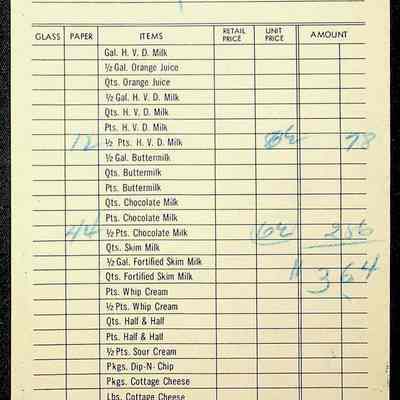 GLASS PAPER ITEMS RETAIL PRICE UNIT PRICE AMOUNT
Gal. H. V. D. Milk
½ Gal. Orange Juice
Qts. Orange Juice
½ Gal. H. V. D. Milk
Qts. H. V. D. Milk
Pts. H. V. D. Milk
12 ½ Pts. H. V. D. Milk 6½ 78
½ Gal. Buttermilk
Qts. Buttermilk
Pts. Buttermilk
Qts. Chocolate Milk
Pts. Chocolate Milk
44 ½ Pts. Chocolate Milk 6½ 286
Qts. Skim Milk
½ Gal. Fortified Skim Milk
Qts. Fortified Skim Milk 364
Pts. Whip Cream
½ Pts. Whip Cream
Qts. Half & Half
Pts. Half & Half
½ Pts. Sour Cream
Pkgs. Dip-N-Chip
Pkgs. Cottage Cheese
Lbs. Cottage Cheese